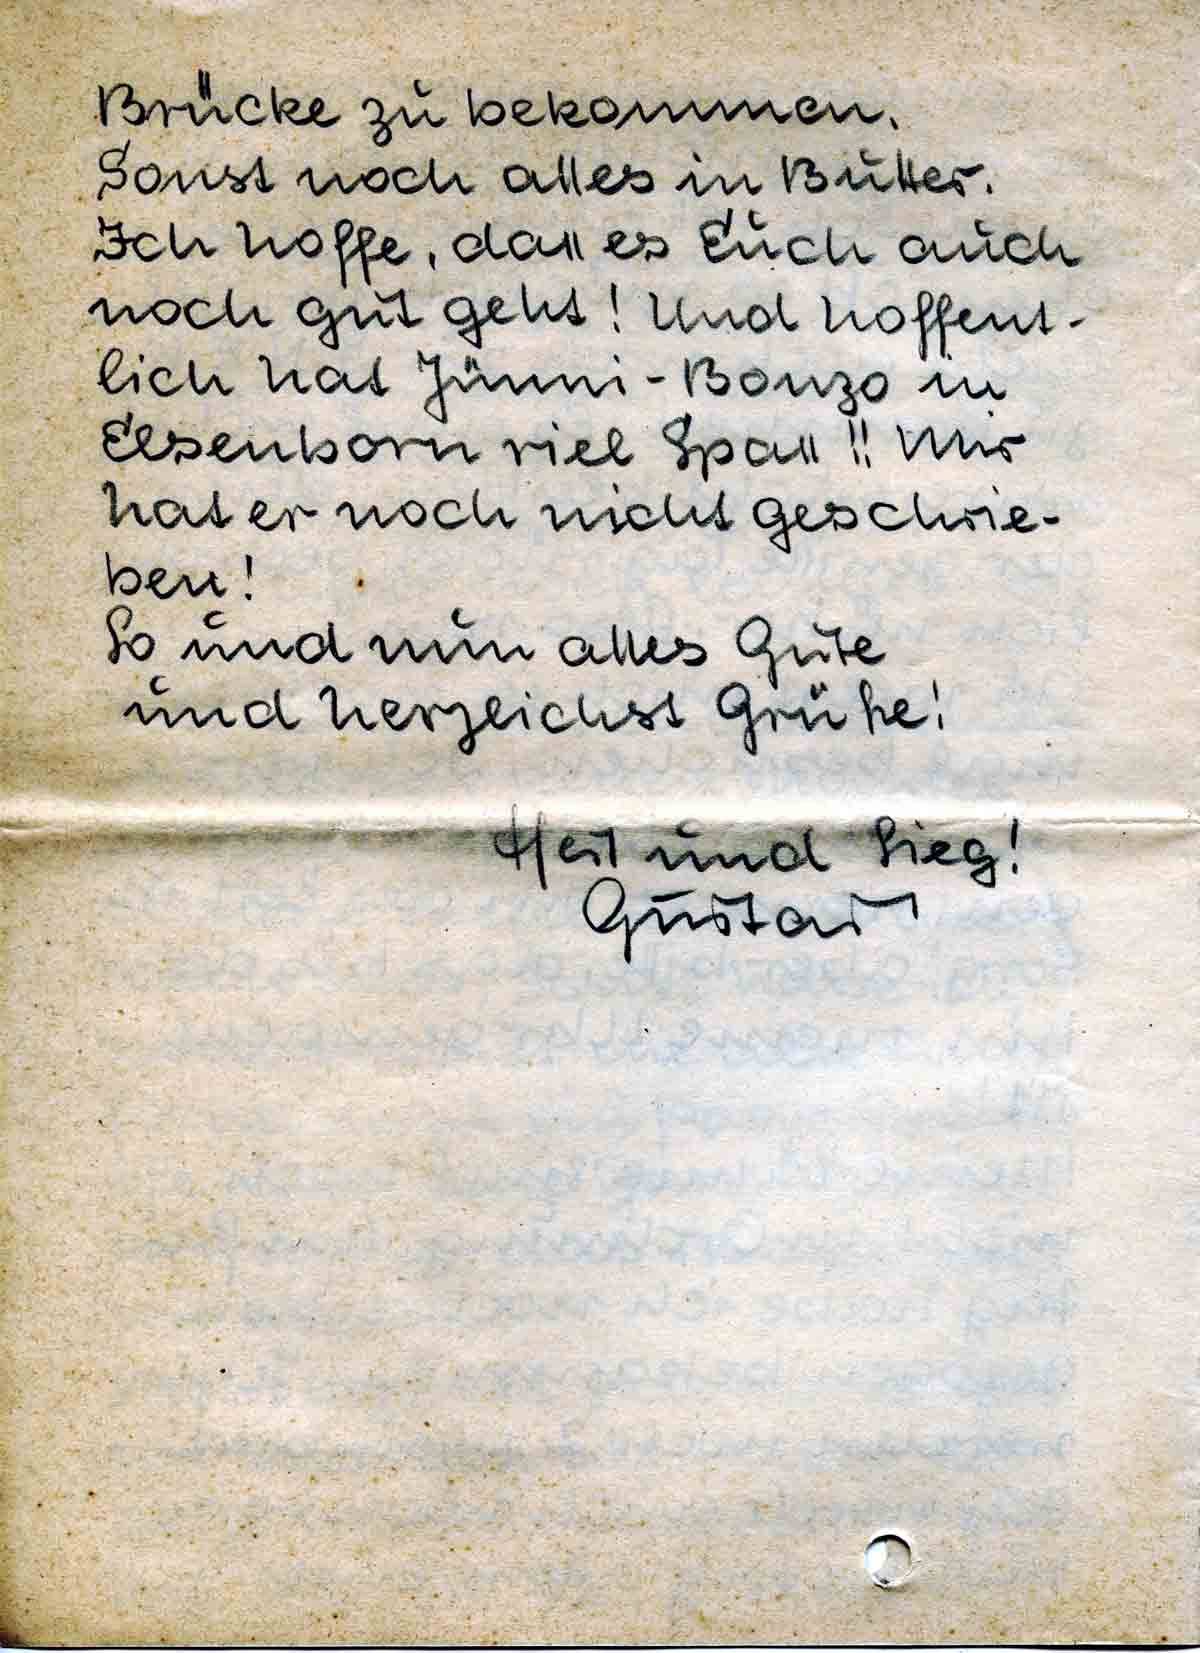 Brücke zu bekommen.
Sonst noch alles in Butter.
Ich hoffe, dass es Euch auch
noch gut geht! Und hoffent-
lich hat Jünni-Bonzo in
Elsenborn viel Spass!! Mir
hat er noch nicht geschrie-
ben!
So und nun alles Gute
und herzlichst Grüße!
Heil und Sieg!
Gustav